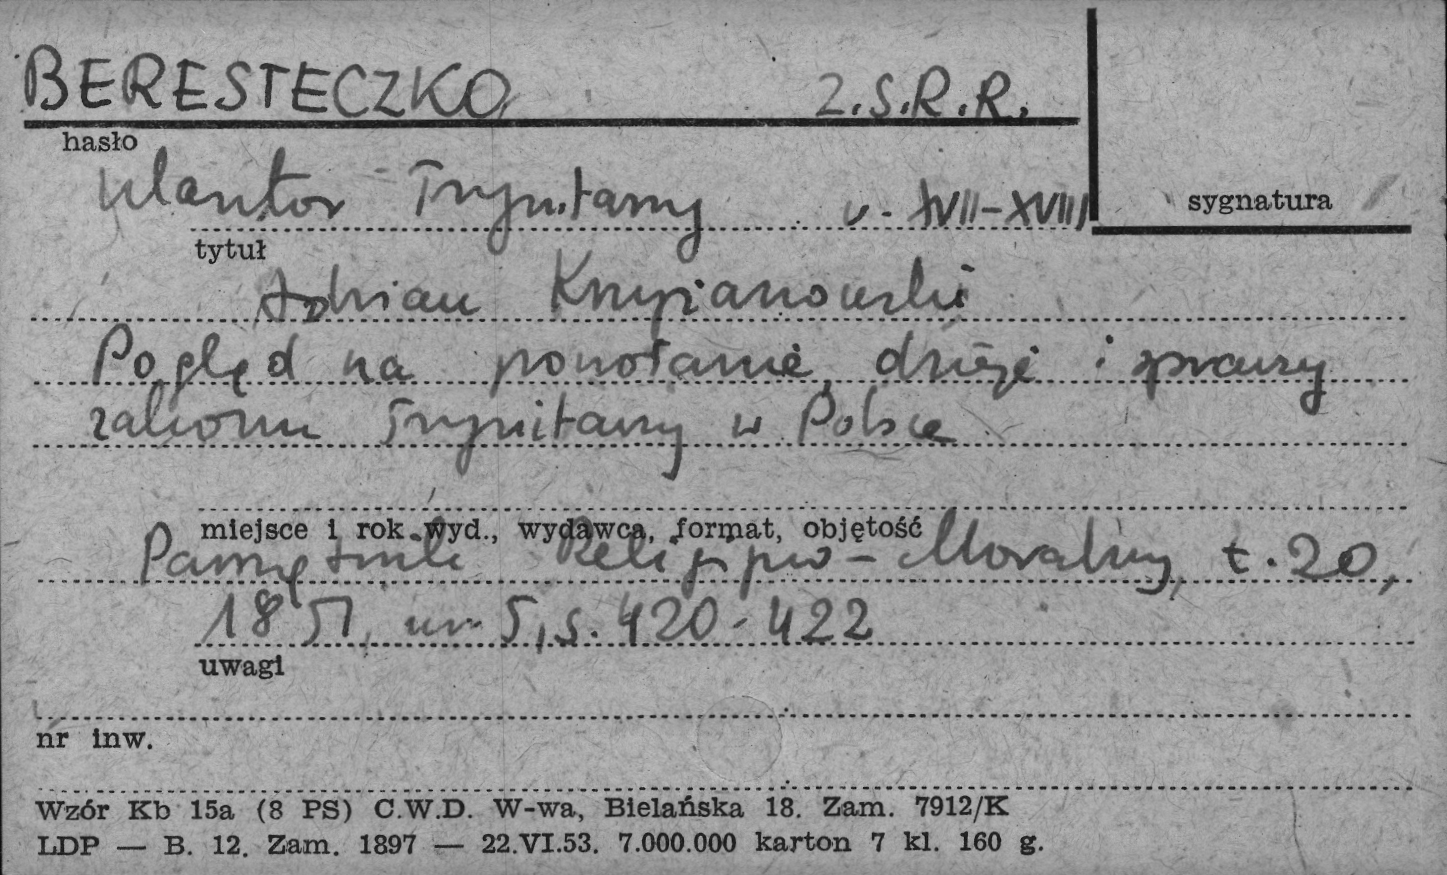 BERESTECZKO Z.S.R.R.
hasło
klasztor Trynitarzy w. XVII-XVIII
sygnatura
tytuł
Adrian Krzyżanowski
Pogląd na powołanie, dzieje i sprawy
zakonu Trynitarzy w Polsce
miejsce i rok wyd., wydawca, format, objętość
Pamiętnik Religijno-Moralny, t. 20,
1851, nr 5, s. 420-422
uwagi
nr inw.
Wzór Kb 15a (8 PS) C.W.D. W-wa, Bielańska 18. Zam. 7912/K
LDP — B. 12. Zam. 1897 — 22.VI.53. 7.000.000 karton 7 kl. 160 g.